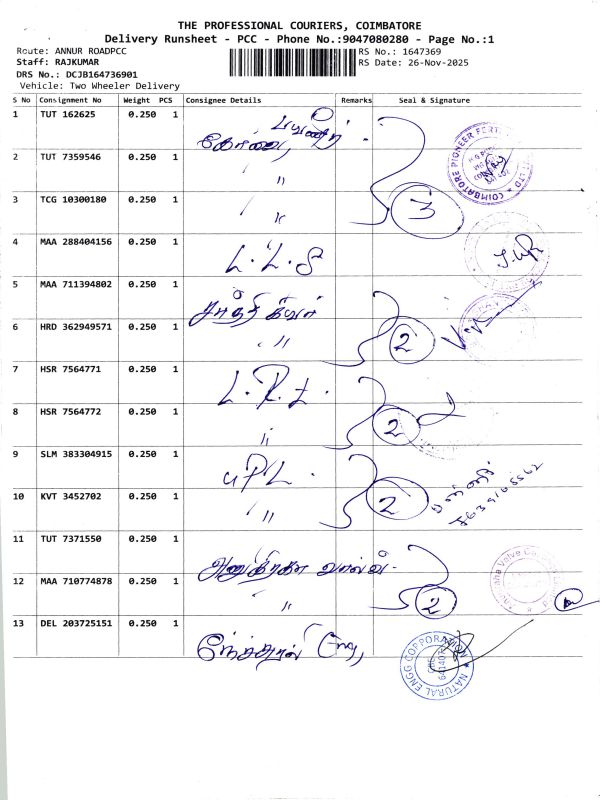 THE PROFESSIONAL COURIERS, COIMBATORE
Delivery Runsheet - PCC - Phone No.:9047080280 - Page No.:1
Route: ANNUR ROADPCC
RS No.: 1647369
Staff: RAJKUMAR
RS Date: 26-Nov-2025
DRS No.: DCJB164736901
Vehicle: Two Wheeler Delivery
S No Consignment No Weight PCS Consignee Details Remarks Seal & Signature
1 TUT 162625 0.250 1
2 TUT 7359546 0.250 1 "
3 TCG 10300180 0.250 1 " 3
4 MAA 288404156 0.250 1 L.L.S
5 MAA 711394802 0.250 1
6 HRD 362949571 0.250 1 " 2
7 HSR 7564771 0.250 1 L.R.I.
8 HSR 7564772 0.250 1 " 2
9 SLM 383304915 0.250 1 UPL.
10 KVT 3452702 0.250 1 " 2
11 TUT 7371550 0.250 1
12 MAA 710774878 0.250 1 " 2
13 DEL 203725151 0.250 1
NATURAL ENGG CORPORATION